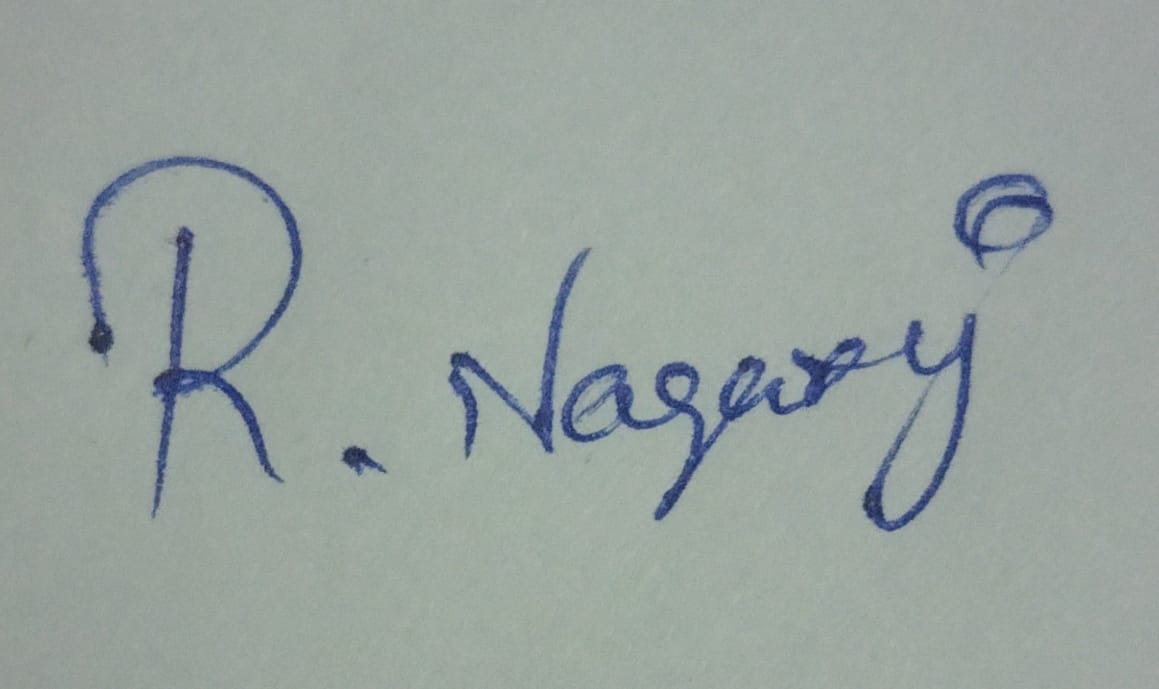 R. Nagaraj